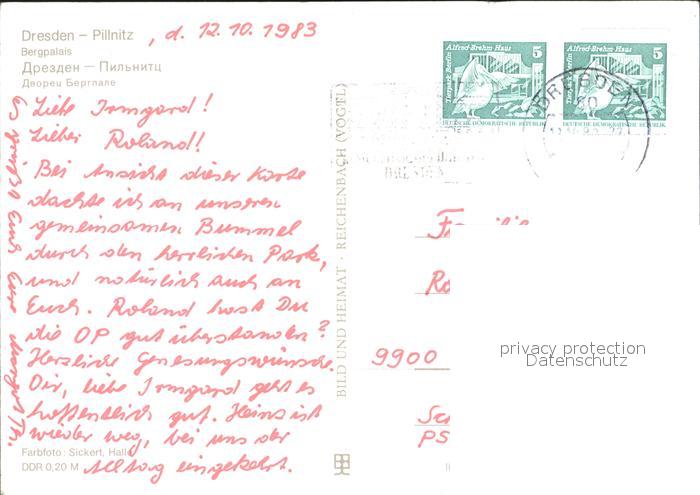 Dresden – Pillnitz , d. 12. 10. 1983
Bergpalais
Дрезден — Пильнитц
Дворец Бергпале
Liebe Irmgard!
Lieber Roland!
Bei Ansicht dieser Karte
dachte ich an unseren
gemeinsamen Bummel
durch den herrlichen Park,
und natürlich auch an
Euch. Roland hast Du
die OP gut überstanden?
Herzliche Genesungswünsche.
Dir, liebe Irmgard geht es
hoffentlich gut. Heinz ist
wieder weg, bei uns der
Alltag eingekehrt.
Es grüßt Euch Eure
Farbfoto: Sickert, Halle
DDR 0,20 M
BILD UND HEIMAT · REICHENBACH (VOGTL)
Tierpark Berlin Alfred-Brehm-Haus 5
DEUTSCHE DEMOKRATISCHE REPUBLIK
Tierpark Berlin Alfred-Brehm-Haus 5
DEUTSCHE DEMOKRATISCHE REPUBLIK
DRESDEN
DRESDEN
9900
PS
privacy protection
Datenschutz